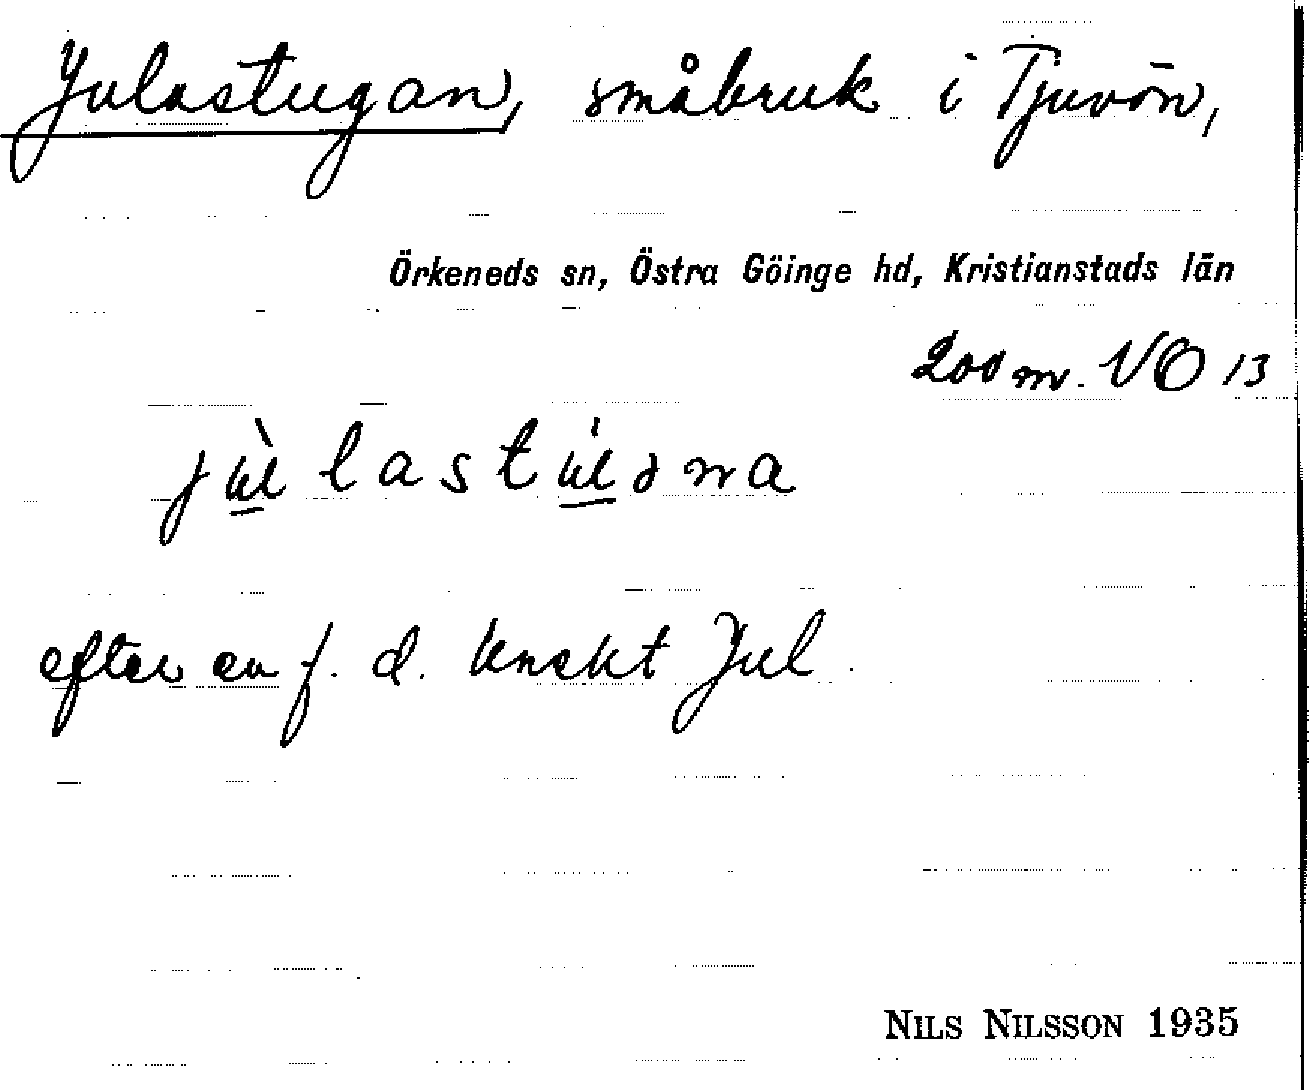 Julastugan, småbruk i Tjuvön,
Örkeneds sn, Östra Göinge hd, Kristianstads län
200 m. VO 13
efter en f. d. knekt Jul.
NILS NILSSON 1935